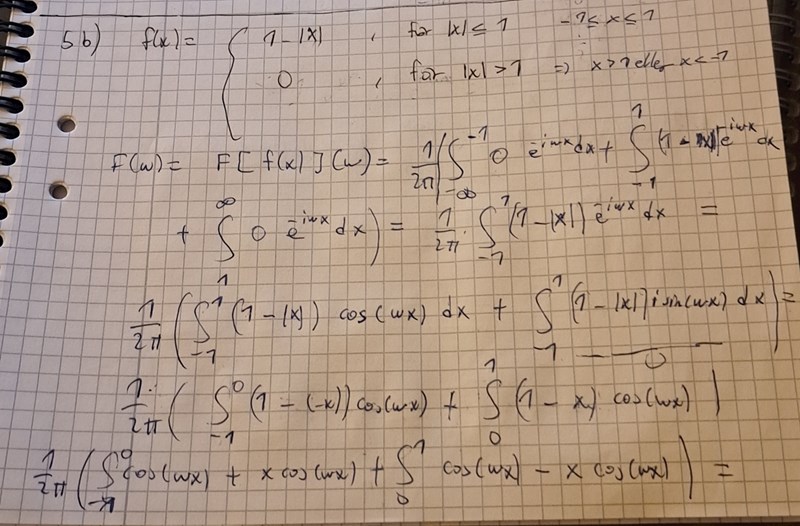 5b) f(x) = { 1-|x| , for |x| ≤ 1 -1 ≤ x ≤ 1
0 , for |x| > 1 => x > 1 eller x < -1
F(ω) = F[f(x)](ω) = 1/2π ( ∫_{-∞}^{-1} 0 e^{-iωx} dx + ∫_{-1}^{1} (1-|x|) e^{-iωx} dx
+ ∫^{∞} 0 e^{-iωx} dx ) = 1/2π · ∫_{-1}^{1} (1-|x|) e^{-iωx} dx =
1/2π ( ∫_{-1}^{1} (1-|x|) cos(ωx) dx + ∫_{-1}^{1} (1-|x|) i sin(ωx) dx ) =
0
1/2π ( ∫_{-1}^{0} (1-(-x)) cos(ωx) + ∫_{0}^{1} (1-x) cos(ωx) )
1/2π ( ∫_{-1}^{0} cos(ωx) + x cos(ωx) + ∫_{0}^{1} cos(ωx) - x cos(ωx) ) =